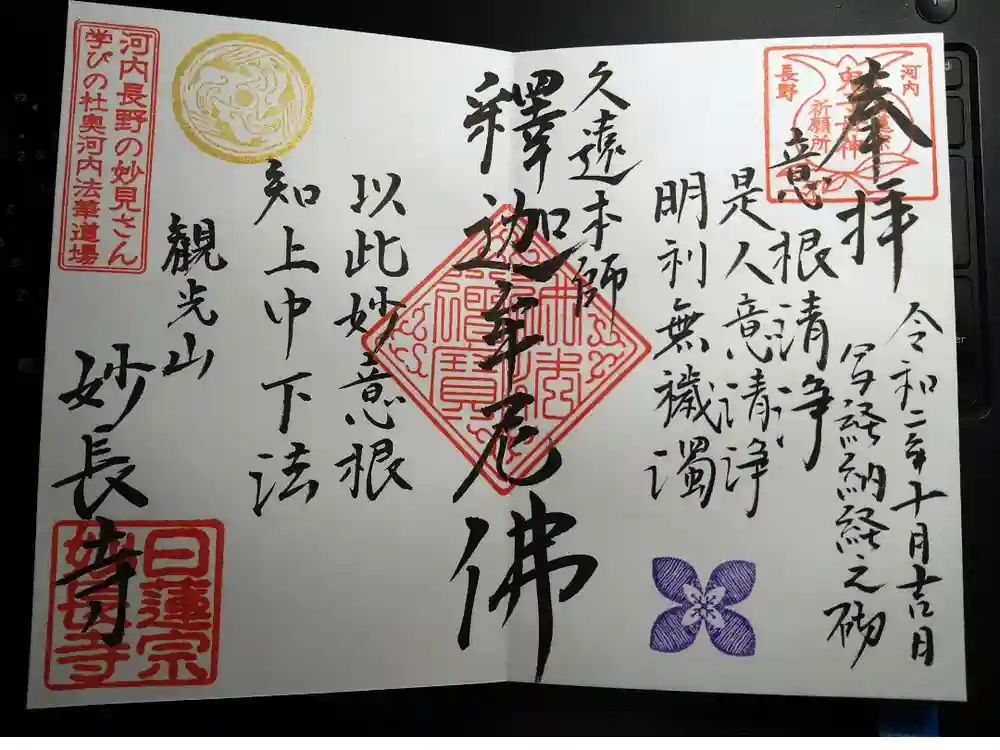 奉拝
令和二年十月吉日
写経納経之砌
意根清浄
是人意清浄
明利無穢濁
久遠本師
釋迦牟尼佛
以此妙意根
知上中下法
観光山
妙長寺
河内
長野
祈願所
河内長野の妙見さん
学びの杜奥河内法華道場
日蓮宗
妙長寺